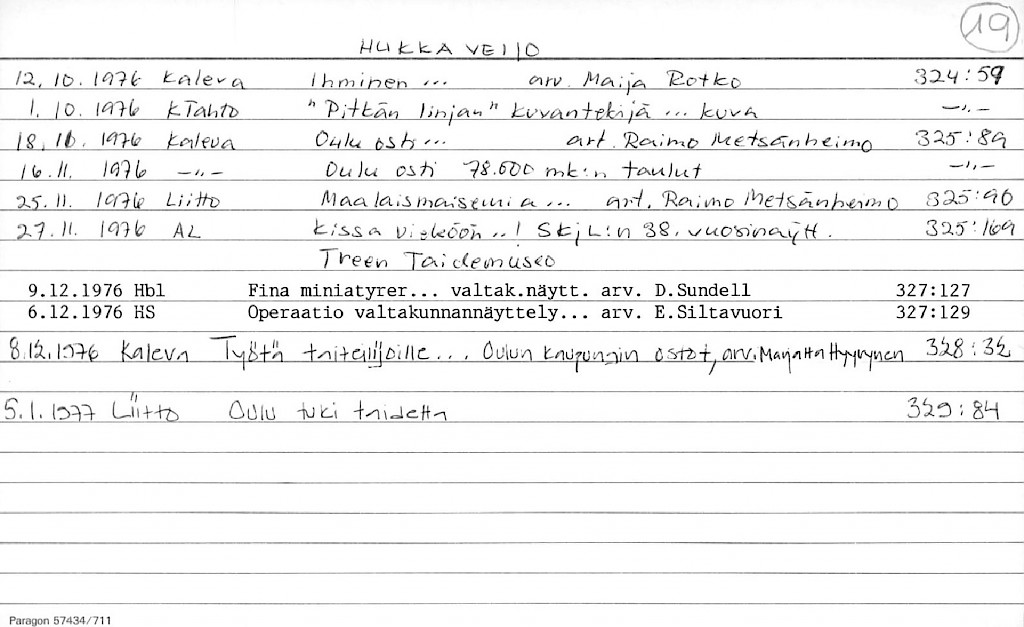 19
HUKKA VEIJO
12.10.1976 Kaleva Ihminen ... arv. Maija Rotko 324:59
1.10.1976 KTahto "Pitkän linjan" kuvantekijä ... kuva —"—
18.10.1976 Kaleva Oulu osti ... art. Raimo Metsänheimo 325:89
16.11. 1976 —"— Oulu osti 78.000 mk:n taulut —"—
25.11. 1976 Liitto Maalaismaisemia ... art. Raimo Metsänheimo 325:90
27.11. 1976 AL Kissa vieköön ..! SKjL:n 38. vuosinäytt. 325:169
Treen Taidemuseo
9.12.1976 Hbl Fina miniatyrer... valtak.näytt. arv. D.Sundell 327:127
6.12.1976 HS Operaatio valtakunnannäyttely... arv. E.Siltavuori 327:129
8.12.1976 Kaleva Työtä taiteilijoille ... Oulun kaupungin ostot, arv. Marjatta Hyyrynen 328:32
5.1.1977 Liitto Oulu tuki taidetta 329:84
Paragon 57434/711